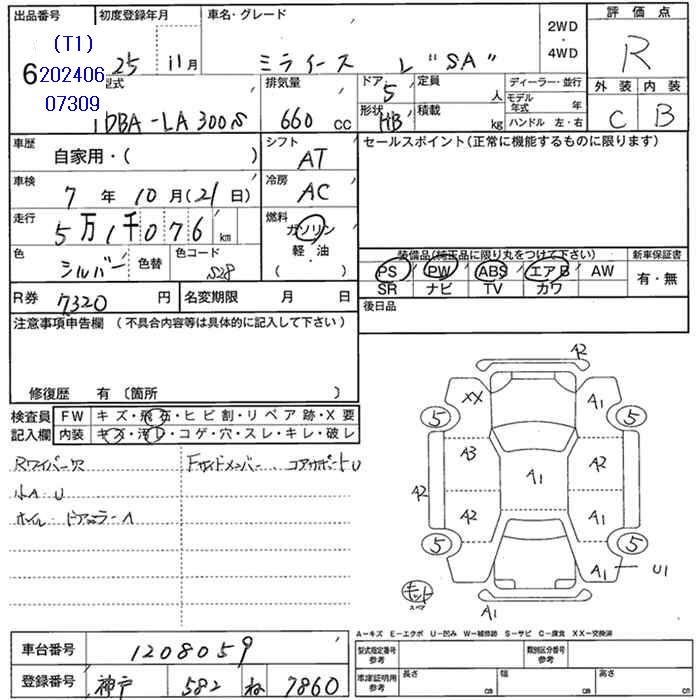 出品番号
初度登録年月
車名・グレード
2WD
・
4WD
評価点
(T1)
6 202406
07309
25 年 11 月
ミライース L "SA"
R
型式
DBA-LA300S
排気量
660 cc
ドア
5
形状
HB
定員
人
積載
kg
ディーラー・並行
モデル
年式 年
ハンドル 左・右
外装
内装
C
B
車歴
自家用・( )
シフト
AT
セールスポイント(正常に機能するものに限ります)
車検
7 年 10 月 (21 日)
冷房
AC
走行
5万1千076 km
燃料
ガソリン
軽・油
( )
色
シルバー
色替
色コード
S28
装備品(純正品に限り丸をつけて下さい)
新車保証書
PS PW ABS エアB AW
SR ナビ TV カワ
有・無
R券
7320 円
名変期限 月 日
後日品
注意事項申告欄 (不具合内容等は具体的に記入して下さい)
修復歴 有(箇所 )
検査員
記入欄
FW キズ・飛石・ヒビ割・リペア跡・X要
内装 キズ・汚レ・コゲ・穴・スレ・キレ・破レ
Rワイパー穴
小A U
ホイル・ドアミラーA
Fサイドメンバー、コアサポートU
A2
XX
A1
5
5
A3
A2
A1
A2
A2
A1
5
5
A1
U1
キット
スペア
A1
A-キズ E-エクボ U-凹み W-補修跡 S-サビ C-腐食 XX-交換済
車台番号
1208059
型式指定番号
参考
類別区分番号
参考
登録番号
神戸 582 ね 7860
車庫証明用
参考
長さ cm
幅 cm
高さ cm